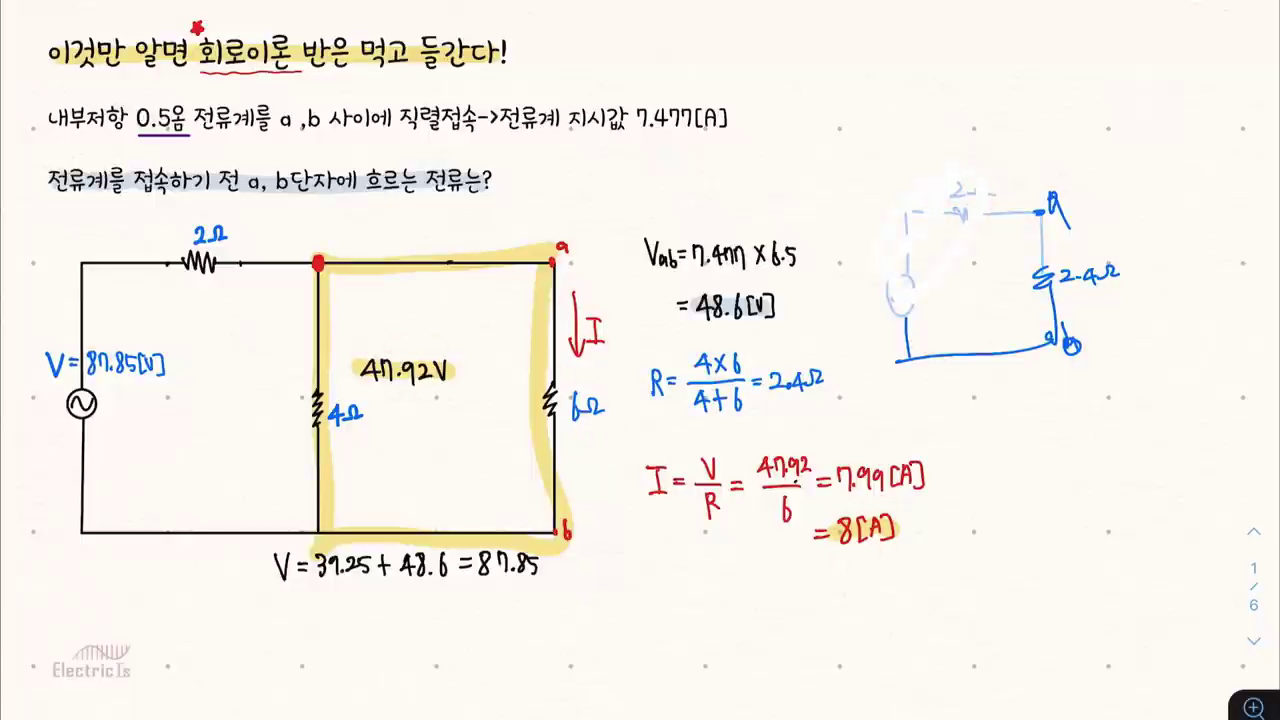 이것만 알면 회로이론 반은 먹고 들간다!
내부저항 0.5옴 전류계를 a ,b 사이에 직렬접속->전류계 지시값 7.477[A]
전류계를 접속하기 전 a, b단자에 흐르는 전류는?
2Ω
a
I
V=87.85[V]
47.92V
4Ω
6Ω
b
V=39.25+48.6=87.85
Vab=7.477×6.5
=48.6[V]
R=4×6/4+6=2.4Ω
I=V/R=47.92/6=7.99[A]
=8[A]
a
2.4Ω
b
1
/
6
Electric Is